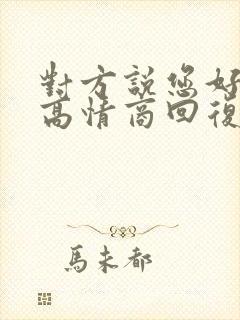 對方說您好
高情商回復
馬未都